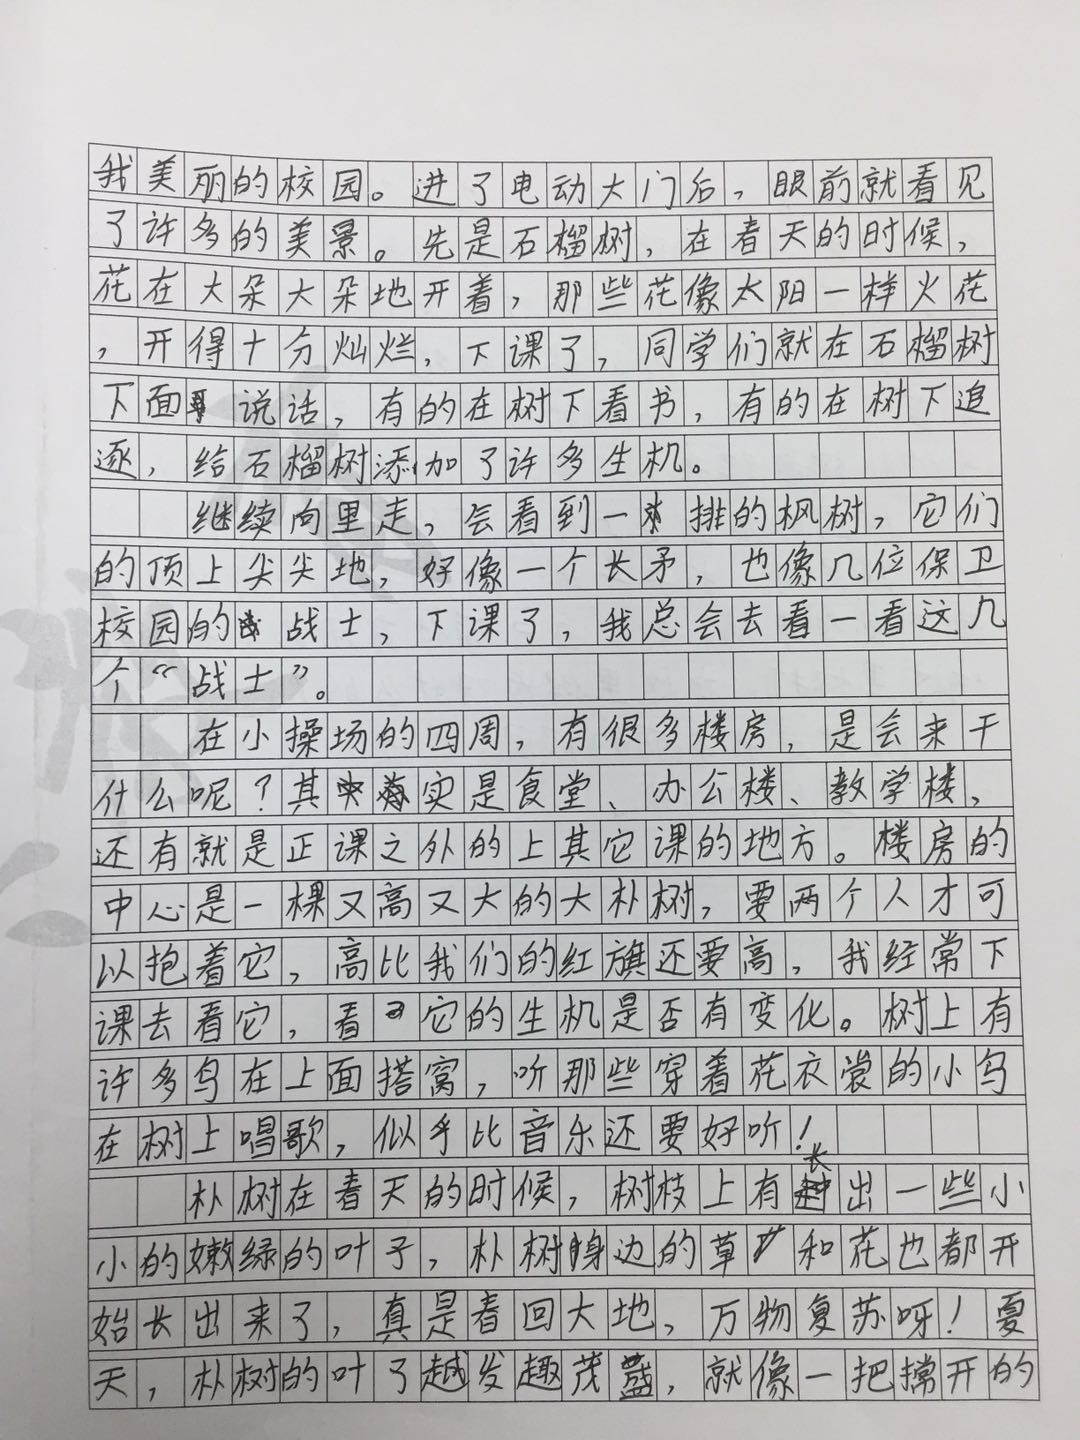 我美丽的校园。进了电动大门后，眼前就看见
了许多的美景。先是石榴树，在春天的时候，
花在大朵大朵地开着，那些花像太阳一样火花
，开得十分灿烂，下课了，同学们就在石榴树
下面说话，有的在树下看书，有的在树下追
逐，给石榴树添加了许多生机。
继续向里走，会看到一排的枫树，它们
的顶上尖尖地，好像一个长矛，也像几位保卫
校园的战士，下课了，我总会去看一看这几
个“战士”。
在小操场的四周，有很多楼房，是会来干
什么呢？其实是食堂、办公楼、教学楼，
还有就是正课之外的上其它课的地方。楼房的
中心是一棵又高又大的大朴树，要两个人才可
以抱着它，高比我们的红旗还要高，我经常下
课去看它，看它的生机是否有变化。树上有
许多鸟在上面搭窝，听那些穿着花衣裳的小鸟
在树上唱歌，似乎比音乐还要好听！
朴树在春天的时候，树枝上有长出一些小
小的嫩绿的叶子，朴树身边的草和花也都开
始长出来了，真是春回大地，万物复苏呀！夏
天，朴树的叶了越发趣茂盛，就像一把撑开的